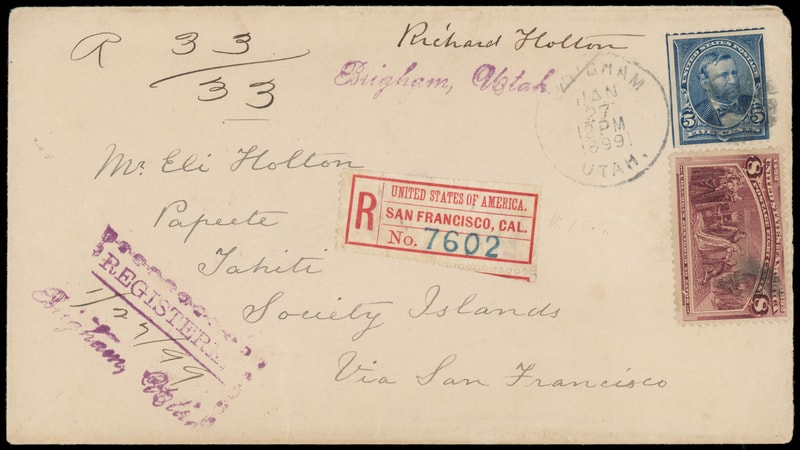 R 33
33
Richard Holton
Brigham, Utah
BRIGHAM
JAN
27
12 PM
1899
UTAH.
UNITED STATES POSTAGE
5 5
FIVE CENTS
8 8
UNITED STATES OF AMERICA
Mr. Eli Holton
Papeete
Tahiti
Society Islands
Via San Francisco
R
UNITED STATES OF AMERICA.
SAN FRANCISCO, CAL.
No. 7602
REGISTERED
1/27/99
Brigham, Utah